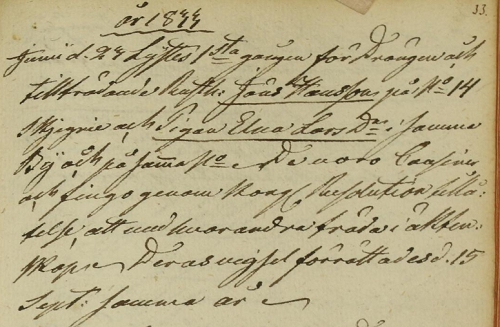 33.
år 1844
Junii d. 23 Lystes 1sta gången för Drängen och
tillträdande Rusth: Jöns Hansson på No 14
Skjegrie och Pigan Elna Lars Dr i samma
By och på samma No. De voro Cusiner
och fingo genom Kongl Resolution tillå:
telse att med hvarandra träda i äkten:
skap. Deras vigsel förrättades d. 15
Sept: samma år